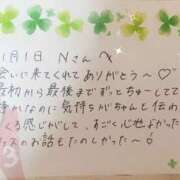 1月1日 Nさんへ
会いに来てくれてありがとう〜♡
最初から最後までずっとちゅーしてて
静かなのに気持ちがちゃんと伝わって
くる感じがして、すごく心地よかった
のお話もたのしかった〜!